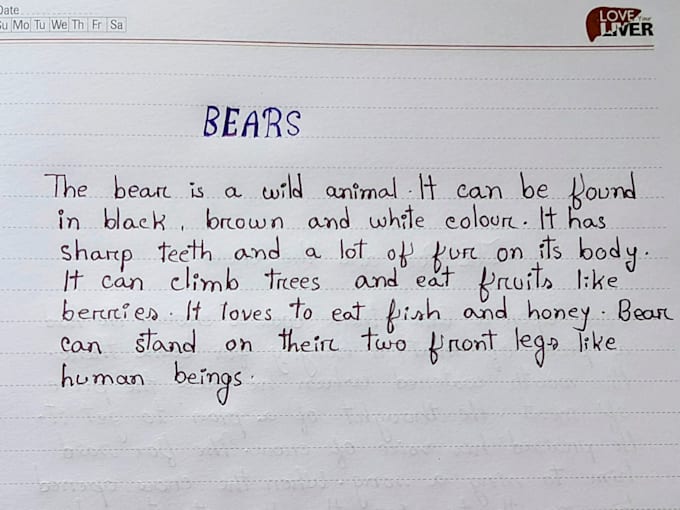 Date
Su Mo Tu We Th Fr Sa
LOVE Your
LIVER
BEARS
The bear is a wild animal. It can be found
in black, brown and white colour. It has
sharp teeth and a lot of fur on its body.
It can climb trees and eat fruits like
berries. It loves to eat fish and honey. Bear
can stand on their two front legs like
human beings.